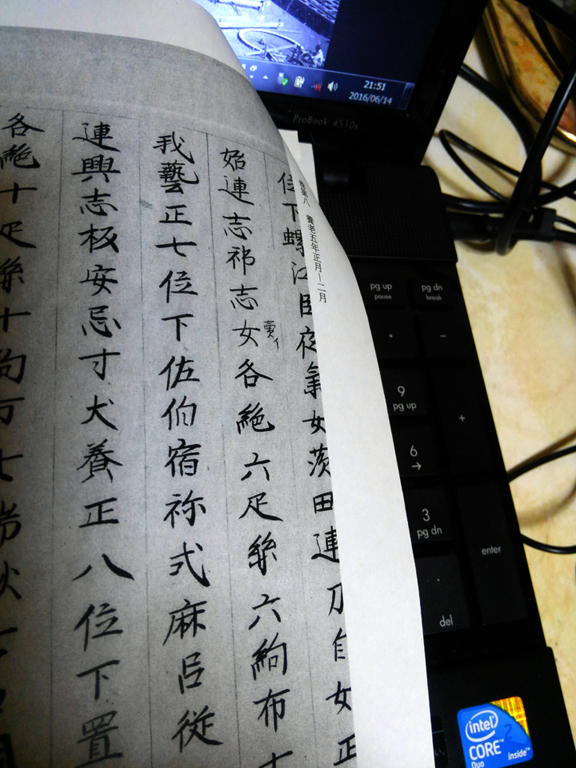 卷第八　養老五年正月—二月
位下螺江臣夜氣女茨田連刀自女正
始連志祁志女各絁六疋絲六絇布十
武藝正七位下佐伯宿祢式麻呂從
連興志板安忌寸犬養正八位下置
各絁十疋絲十絇布廿端鍬
21:51
2016/06/14
ProBook 4510s
pg up
pause
pg dn
break
9
pg up
6
3
pg dn
+
-
enter
del
intel
CORE 2
Duo
inside